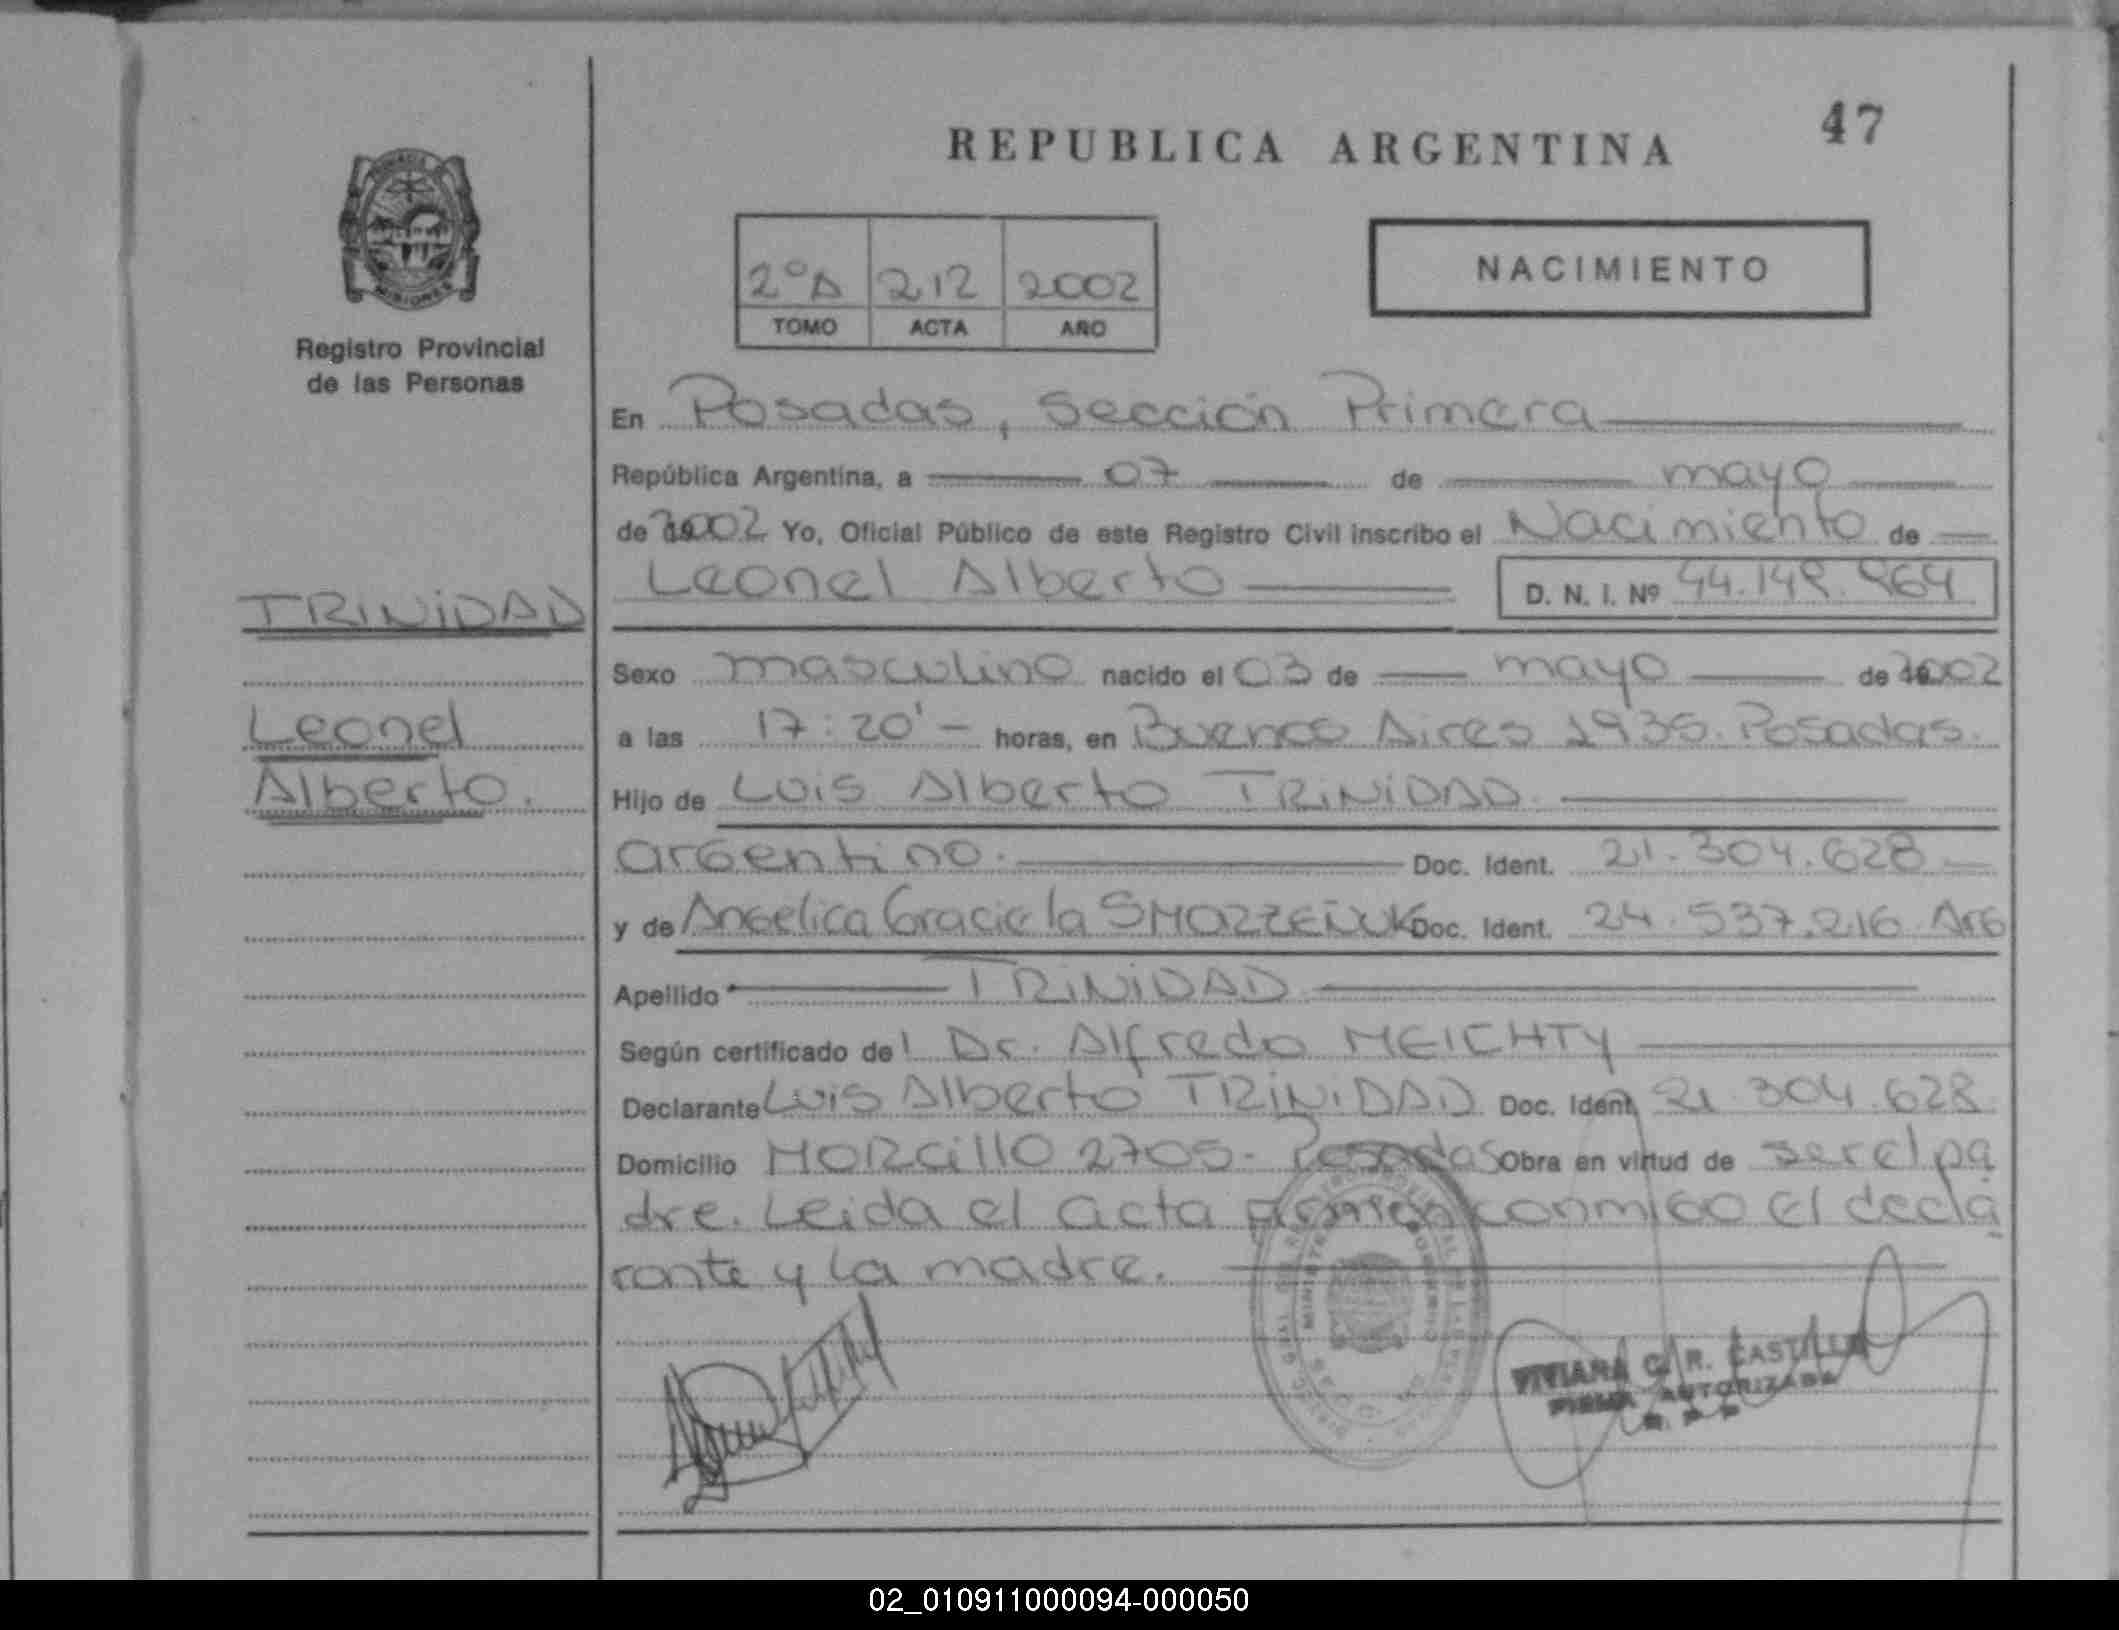 47
REPUBLICA ARGENTINA
NACIMIENTO
2°A 212 2002
TOMO ACTA AÑO
MISIONES
Registro Provincial
de las Personas
TRINIDAD
Leonel
Alberto.
En Posadas, Sección Primera
República Argentina, a 07 de mayo
de 2002 Yo, Oficial Público de este Registro Civil inscribo el Nacimiento de
Leonel Alberto D. N. I. Nº 44.149.964
Sexo masculino nacido el 03 de mayo de 2002
a las 17:20' - horas, en Buenos Aires 1935. Posadas.
Hijo de Luis Alberto TRINIDAD.
argentino. Doc. Ident. 21.304.628
y de Angelica Graciela Doc. Ident. 24.537.216 Arg
Apellido TRINIDAD
Según certificado del Dr. Alfredo MEICHTY
Declarante Luis Alberto TRINIDAD Doc. Ident. 21.304.628
Domicilio MORCillO 2705. Posadas Obra en virtud de ser el pa
dre. Leida el acta conmigo el decla
rante y la madre.
MINISTERIO GOBIERNO
VIVIANA C. R. CASTILLO
FIRMA AUTORIZADA
02_010911000094-000050